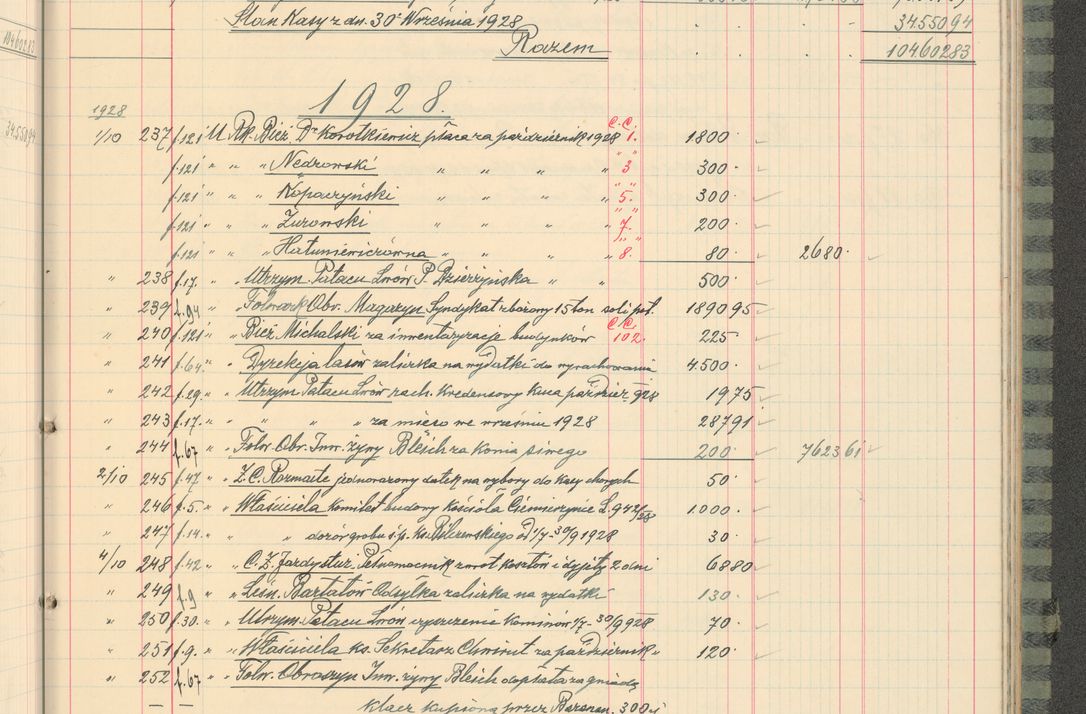 Stan Kasy z dn. 30 Września 1928 3455094
Razem 10460283
1928.
1928
1/10 237 f.121 U. Rk. Bież. Dr Korotkiewicz płaca za październik 1928 C.C. 1. 1800
f.121 " " " Nedrowski " " " " 3 300
f.121 " " " Kopaczyński " " " " 5. 300
f.121 " " " Żurowski " " " " 7. 200
f.121 " " " Hatuniewiczówna " " " " 8. 80 2680
" 238 f.17. " Utrzym. Pałacu Lwów P. Dzierżyńska " " 500
" 239 f.94 " Folwark Obr. Magazyn Syndykat zbożowy 15 ton soli pot. 189095
" 240 f.121 " " Bież. Michalski za inwentaryzacje budynków C.C. 102. 225
" 241 f.64. " " Dyrekcja lasów zaliczka na wydatki do wyrachowania 4.500
" 242 f.29. " " Utrzym. Pałacu Lwów rach. Kredensowy Kuca paździer. 928 1975
" 243 f.17. " " " " za mięso we wrześniu 1928 28791
" 244 f.67 " " Folw. Obr. Inw. żywy Bleich za konia siwego 200 762361
2/10 245 f.47. " " Z.C. Rozmaite jednorazowy datek na wybory do kasy chorych 50
" 246 f.5. " " Właściciela Komitet budowy Kościoła L. 942/28 1.000
" 247 f.14. " " " dozór grobu ś.p. ks. Bilczewskiego od 1/7 - 30/9 1928 30
4/10 248 f.42 " " Pełnomocnik zwrot kosztów i dyjety 2 dni 6880
" 249 f.9 " " Leśn. Bartatów Odsyłka zaliczka na wydatki 130
" 250 f.30. " " Utrzym. Pałacu Lwów czyszczenie kominów 1/7 - 30/9 928 70
" 251 f.9. " " Właściciela ks. Sekretarz za październik " 120
" 252 f.67 " " Folw. Obroszyn Inw. żywy Bleich dopłata za gniadą
klacz kupioną przez 300 zł
10460283
3455094